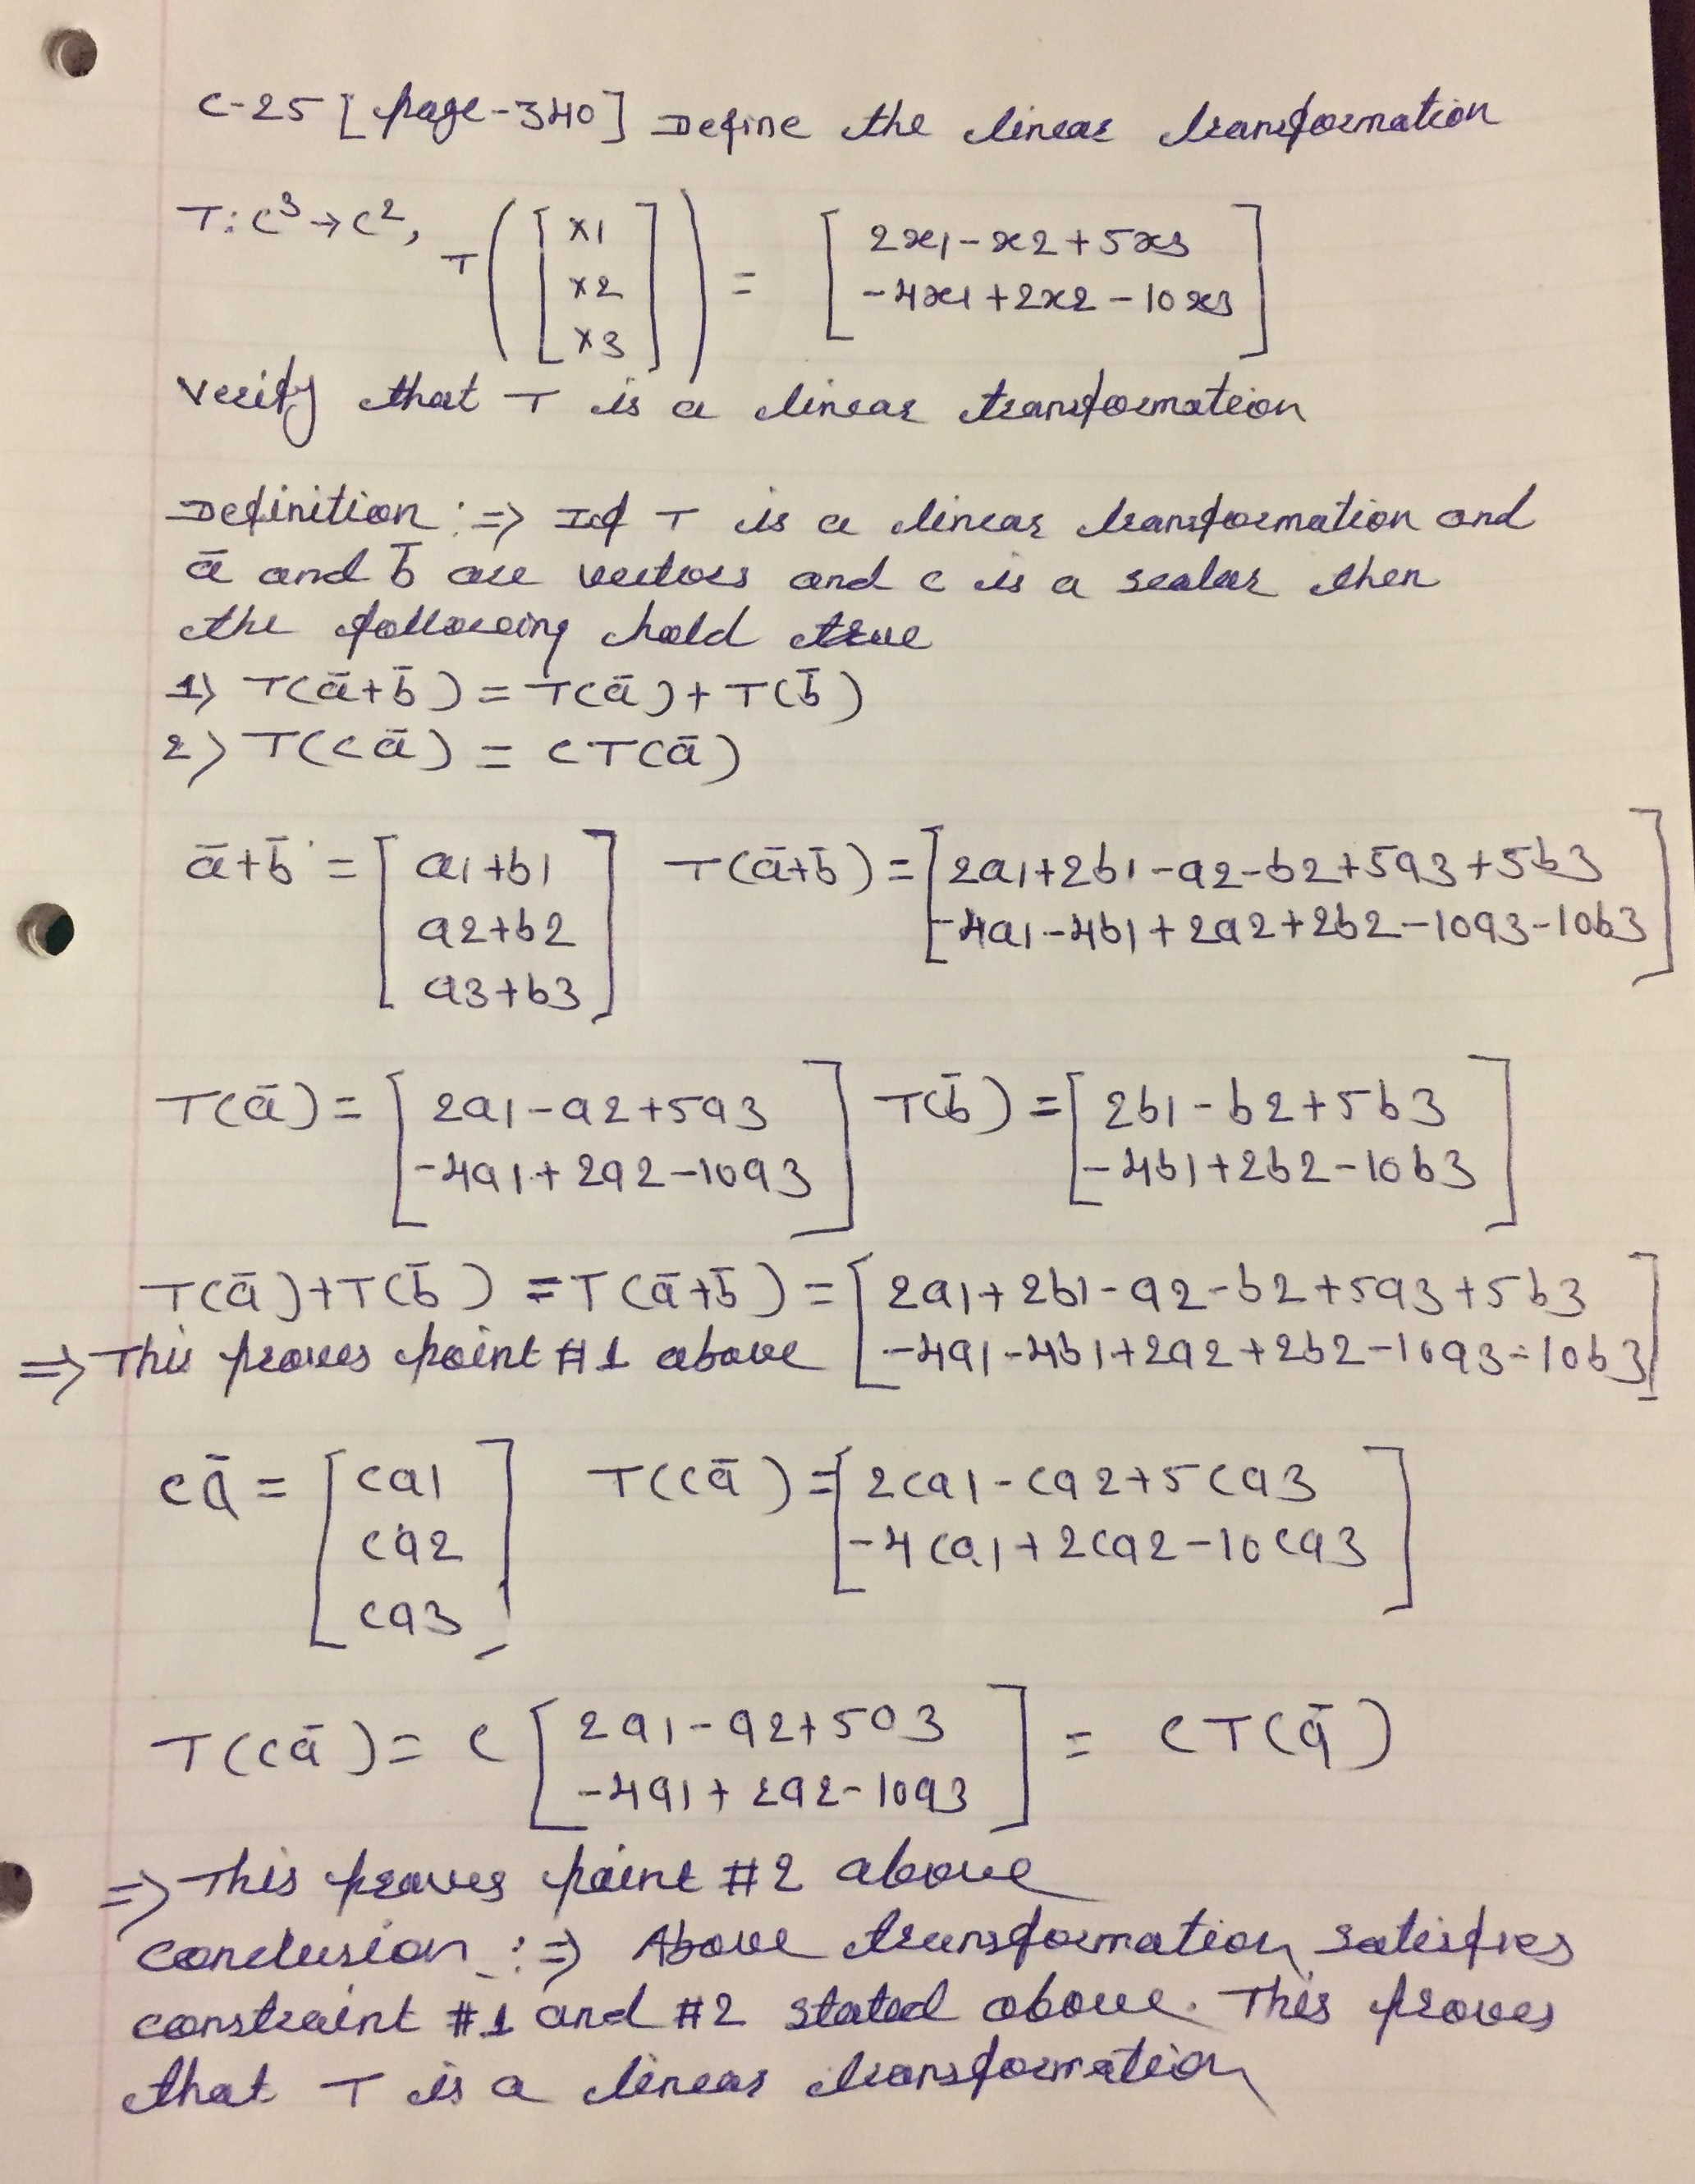 C-25 [page-340] Define the linear transformation
T: C³→C², T([x1 x2 x3]) = [2x1-x2+5x3
-4x1+2x2-10x3]
Verify that T is a linear transformation
Definition :⇒ If T is a linear transformation and
ā and b̄ are vectors and c is a scalar then
the following hold true
1) T(ā+b̄) = T(ā) + T(b̄)
2) T(cā) = cT(ā)
ā+b̄ = [a1+b1 a2+b2 a3+b3] T(ā+b̄) = [2a1+2b1-a2-b2+5a3+5b3
-4a1-4b1+2a2+2b2-10a3-10b3]
T(ā) = [2a1-a2+5a3 T(b̄) = [2b1-b2+5b3
-4a1+2a2-10a3] -4b1+2b2-10b3]
T(ā)+T(b̄) = T(ā+b̄) = [2a1+2b1-a2-b2+5a3+5b3
⇒ This proves point #1 above -4a1-4b1+2a2+2b2-10a3-10b3]
cā = [ca1 ca2 ca3] T(cā) = [2ca1-ca2+5ca3
-4ca1+2ca2-10ca3]
T(cā) = c[2a1-a2+5a3
-4a1+2a2-10a3] = cT(ā)
⇒ This proves point #2 above
conclusion :⇒ Above transformation satisfies
constraint #1 and #2 stated above. This proves
that T is a linear transformation